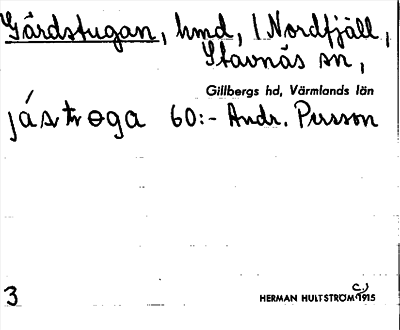 Gårdstugan, hmd, / Nordfjäll,
Stavnäs sn,
Gillbergs hd, Värmlands län
jástrɵga 60:- Andr. Persson
3 HERMAN HULTSTRÖM (C.) 1915